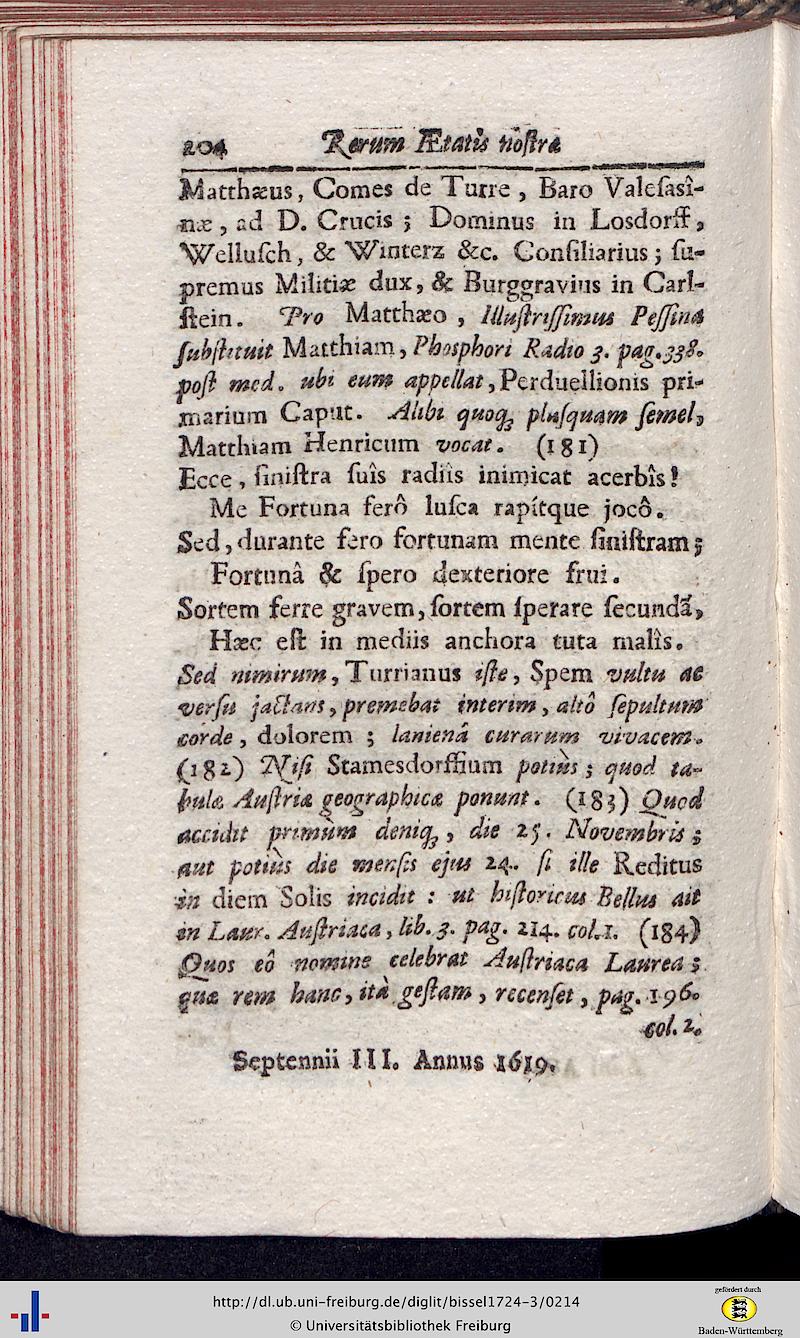 204 Rerum Ætatis nostræ
Matthæus, Comes de Turre, Baro Valeſasî-
næ, ad D. Crucis; Dominus in Losdorff,
Welluſch, & Winterz &c. Conſiliarius; ſu-
premus Militiæ dux, & Burggravius in Carl-
ſtein. Pro Matthæo, Illuſtriſſimus Peſſina
ſubſtituit Matthiam, Phosphori Radio 3. pag. 338.
poſt med. ubi eum appellat, Perduellionis pri-
marium Caput. Alibi quoq; pluſquam ſemel,
Matthiam Henricum vocat. (181)
Ecce, ſiniſtra ſuîs radiis inimicat acerbîs!
Me Fortuna ferô luſca rapítque jocô.
Sed, durante fero fortunam mente ſiniſtram;
Fortunâ & ſpero dexteriore frui.
Sortem ferre gravem, ſortem ſperare ſecundā,
Hæc eſt in mediis anchora tuta malîs.
Sed nimirum, Turrianus iſte, Spem vultu ac
verſu jactans, premebat interim, altô ſepultum
corde, dolorem; lanienâ curarum vivacem.
(182) Niſi Stamesdorffium potiùs; quod ta-
bulæ Auſtriæ geographicæ ponunt. (183) Quod
accidit primùm deniq;, die 25. Novembris;
aut potiùs die menſis ejus 24. ſi ille Reditus
in diem Solis incidit: ut hiſtoricus Bellus ait
in Laur. Auſtriaca, lib. 3. pag. 214. col. 1. (184)
Quos eô nomine celebrat Auſtriaca Laurea;
quæ rem hanc, ità geſtam, recenſet, pag. 196.
col. 2.
Septennii III. Annus 1619.
http://dl.ub.uni-freiburg.de/diglit/bissel1724-3/0214
© Universitätsbibliothek Freiburg
gefördert durch
Baden-Württemberg